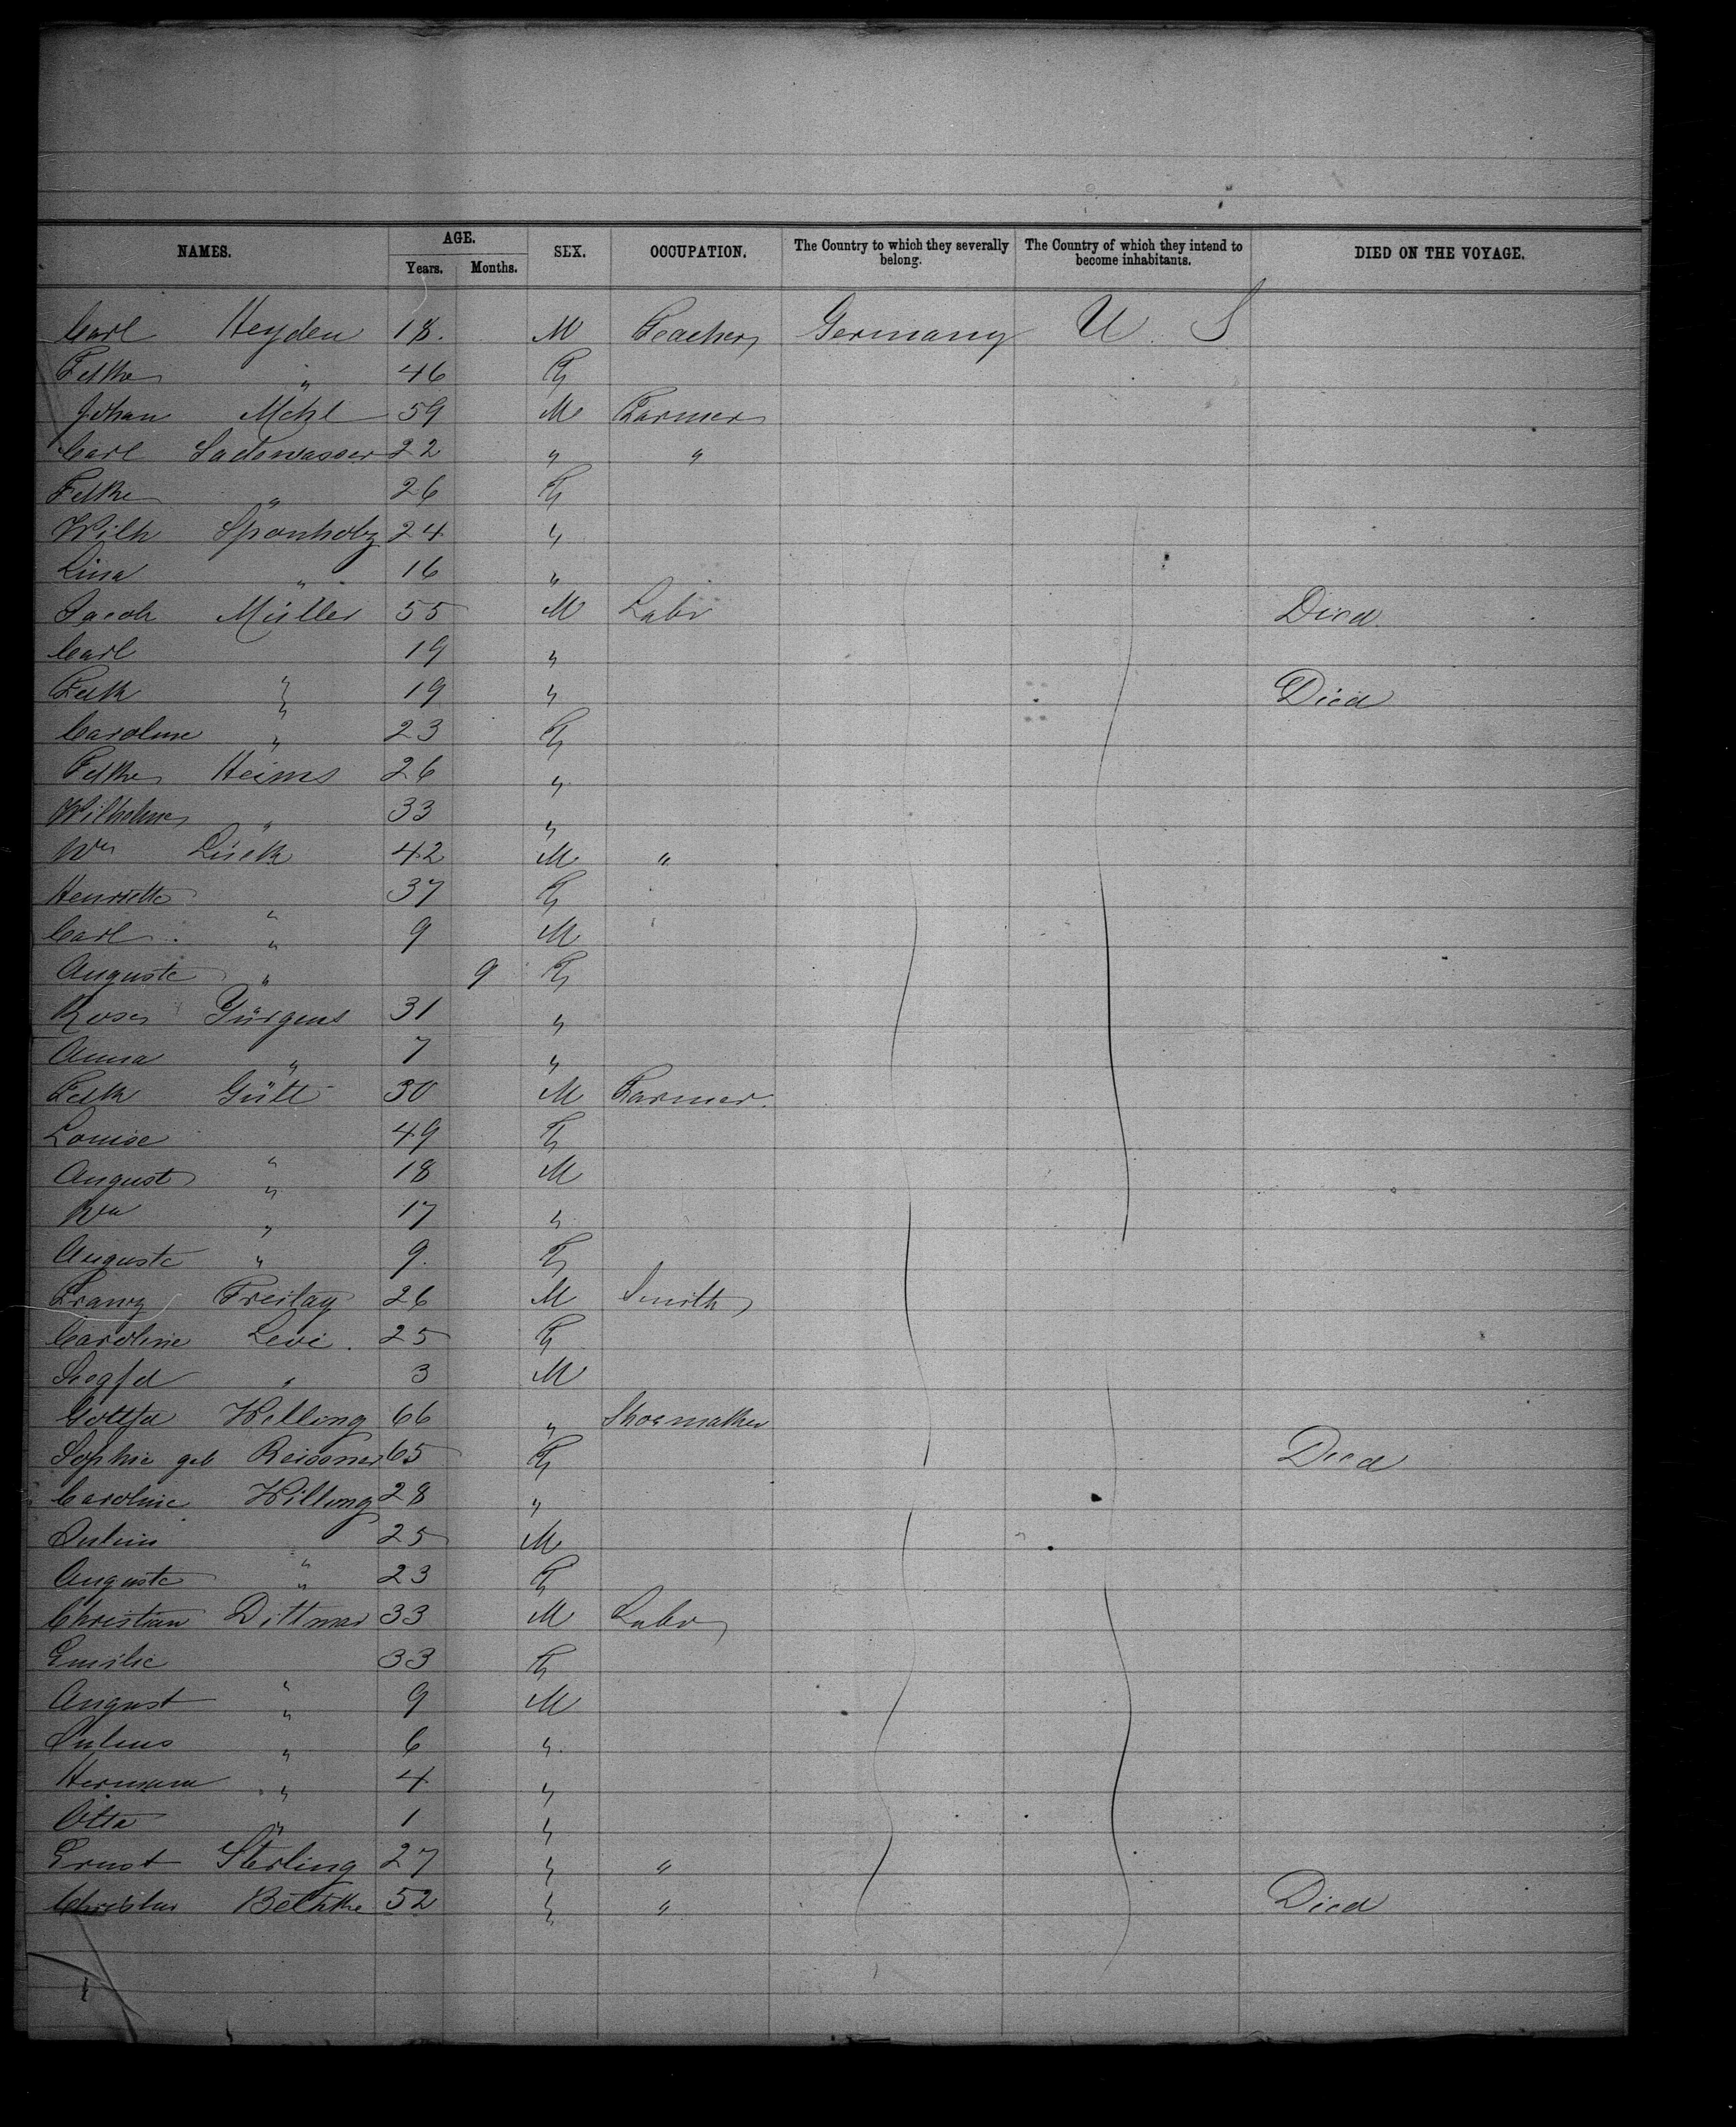 NAMES. AGE. SEX. OCCUPATION. The Country to which they severally belong. The Country of which they intend to become inhabitants. DIED ON THE VOYAGE.
Years. Months.
Carl Heyden 18. M Teacher Germany U. S
Fdke " 46 F
Johan Mchl 59 M Farmer
Carl Sadewasser 22 " "
Fdke " 26 F
Wilh Sponholz 24 "
Lina " 16 "
Jacob Müller 55 M Labr Died
Carl 19 "
Fdk " 19 " Died
Caroline " 23 F
Fdke Heims 26 "
Wilhelme " 33 "
Wm Lück 42 M "
Henriette " 37 F
Carl " 9 M
Auguste " 9 F
Rosa Jürgens 31 "
Anna " 7 "
Fdk Gült 30 M Farmer.
Louise " 49 F
August " 18 M
Wm " 17 "
Auguste " 9. F
Franz Freitag 26 M Smith
Caroline Levi. 25 F
Siegfd " 3 M
Gottfd Helling 66 " Shoemaker
Sophie geb Reissner 65 F Died
Caroline Hilling 28 "
Julius " 25 M
Auguste " 23 F
Christian Dittmar 33 M Labr
Emilie 33 F
August " 9 M
Julius " 6 "
Hermann " 4 "
Otto " 1 "
Ernst Sterling 27 " "
Bethke 52 " " Died